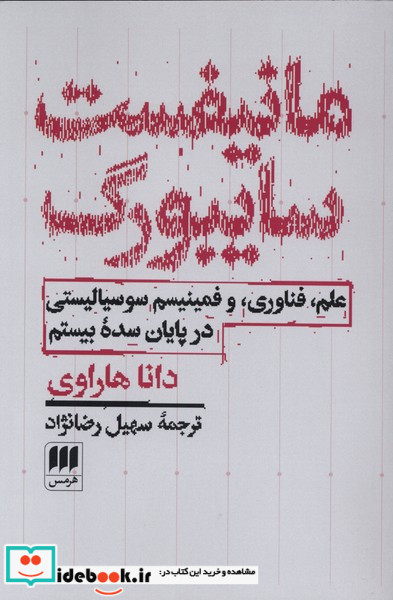 مانیفست
سایبورگ
علم، فناوری، و فمینیسم سوسیالیستی
در پایان سدهٔ بیستم
دانا هاراوی
ترجمهٔ سهیل رضانژاد
هرمس
مشاهده و خرید این کتاب در:
idebook.ir